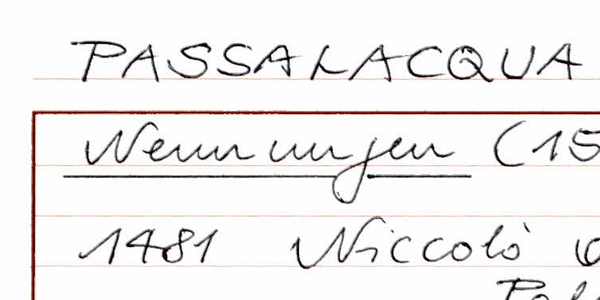 PASSALACQUA
Nennungen (15
1481 Niccolò